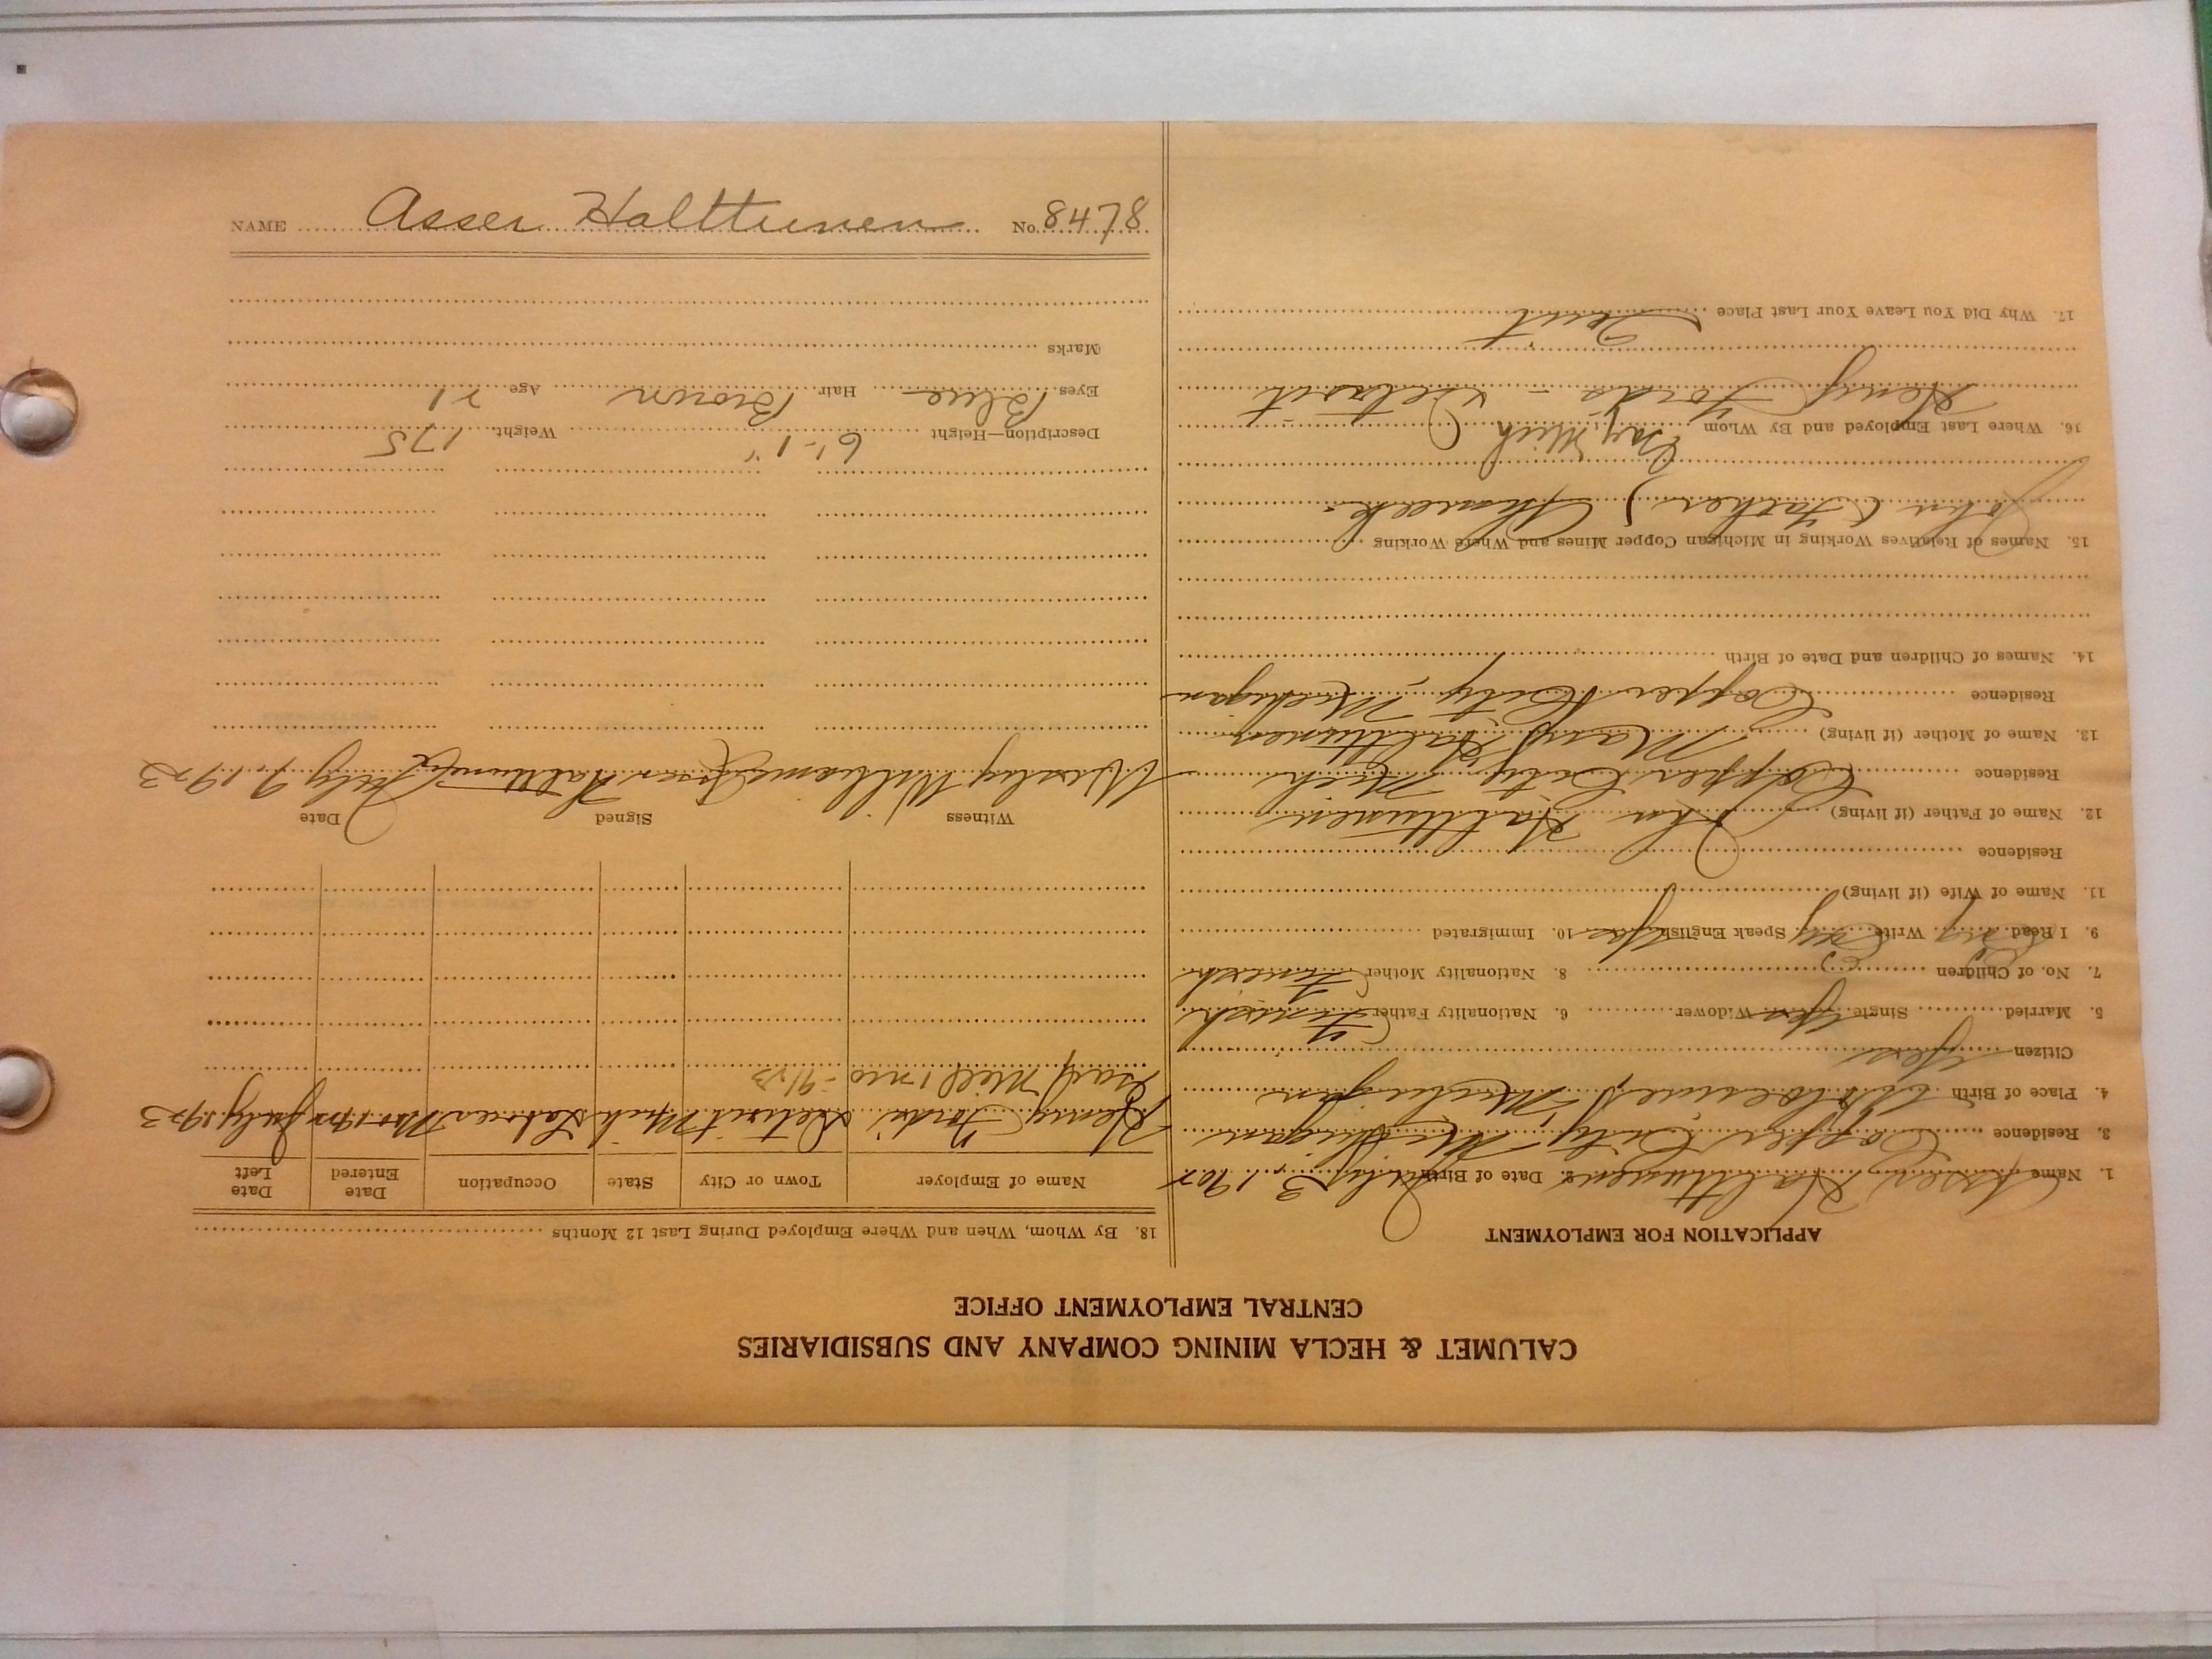 CALUMET & HECLA MINING COMPANY AND SUBSIDIARIES
CENTRAL EMPLOYMENT OFFICE
APPLICATION FOR EMPLOYMENT
1. Name Asser Halttunen 2. Date of Birth July 3 1902
3. Residence Copper City, Michigan
4. Place of Birth Wolverine, Michigan
Citizen Yes
5. Married Single Yes Widower 6. Nationality Father Finnish
7. No. of Children 8. Nationality Mother Finnish
9. I Read Eng Write Eng Speak English Yes 10. Immigrated
11. Name of Wife (if living)
Residence
12. Name of Father (if living) John Halttunen
Residence Copper City, Mich
13. Name of Mother (if living) Mary Halttunen
Residence Copper City, Michigan
14. Names of Children and Date of Birth
15. Names of Relatives Working in Michigan Copper Mines and Where Working
John (Father) Ahmeek.
16. Where Last Employed and By Whom Gay, Mich
Henry Fords - Detroit
17. Why Did You Leave Your Last Place Quit
18. By Whom, When and Where Employed During Last 12 Months
Name of Employer Town or City State Occupation Date Entered Date Left
Henry Fords Detroit Mich Laborer Mar 1923 July 1923
Gay Mill 1 mo
Witness Signed Date
Wesley Williams Asser Halttunen July 9, 1923
Description—Height 6'-1" Weight 175
Eyes Blue Hair Brown Age 21
Marks
NAME Asser Halttunen No. 8478